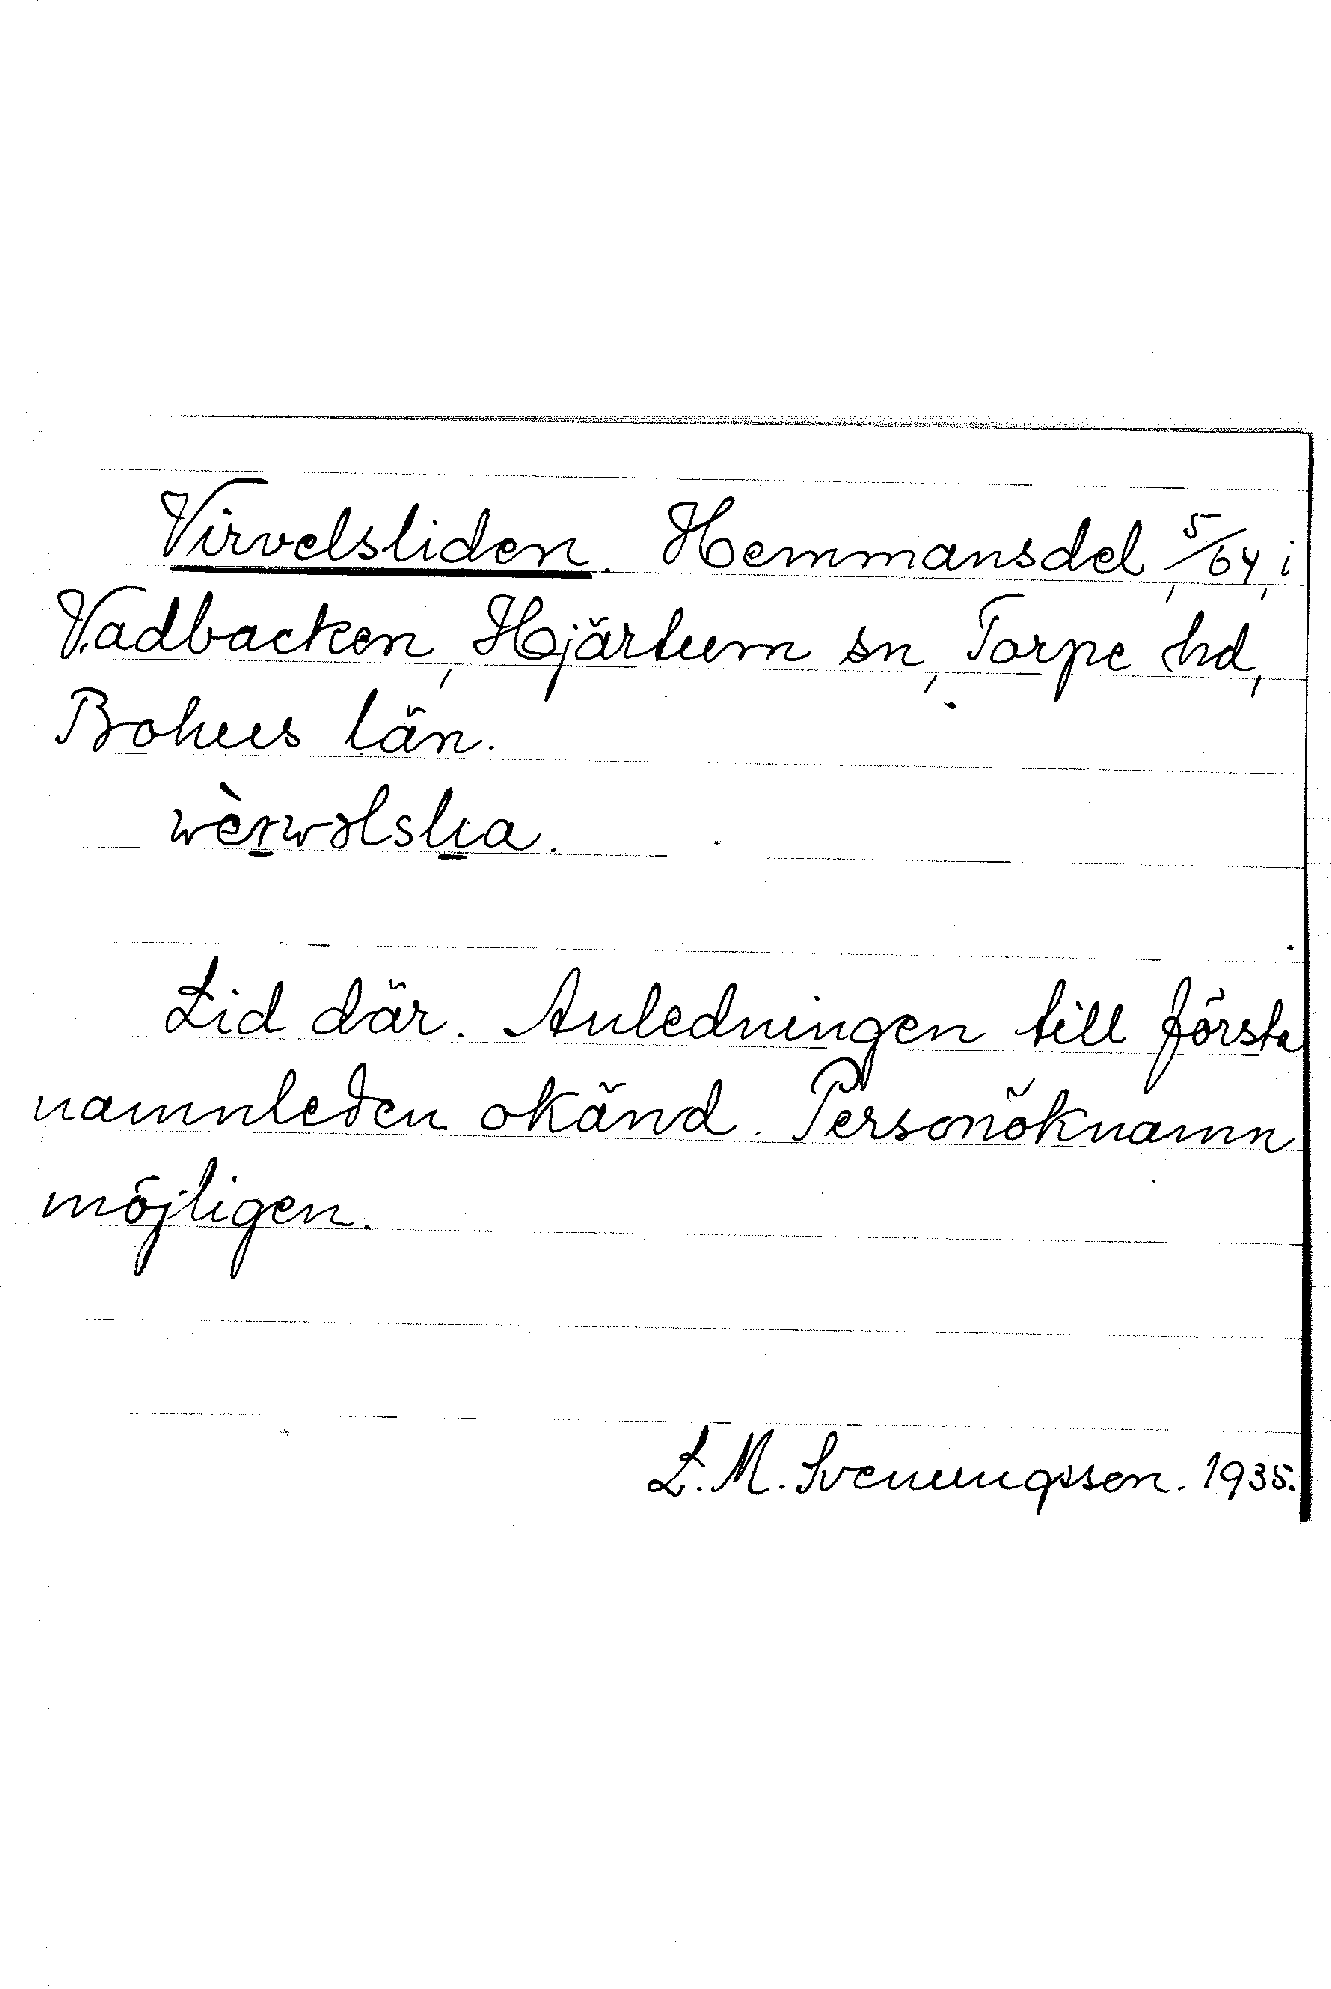 Virvelsliden. Hemmansdel, 5/64, i
Vadbacken, Hjärtum sn, Torpe hd,
Bohus län.
Lid där. Anledningen till första
namnleden okänd. Personöknamn
möjligen.
L. M. Svenungsson. 1935.